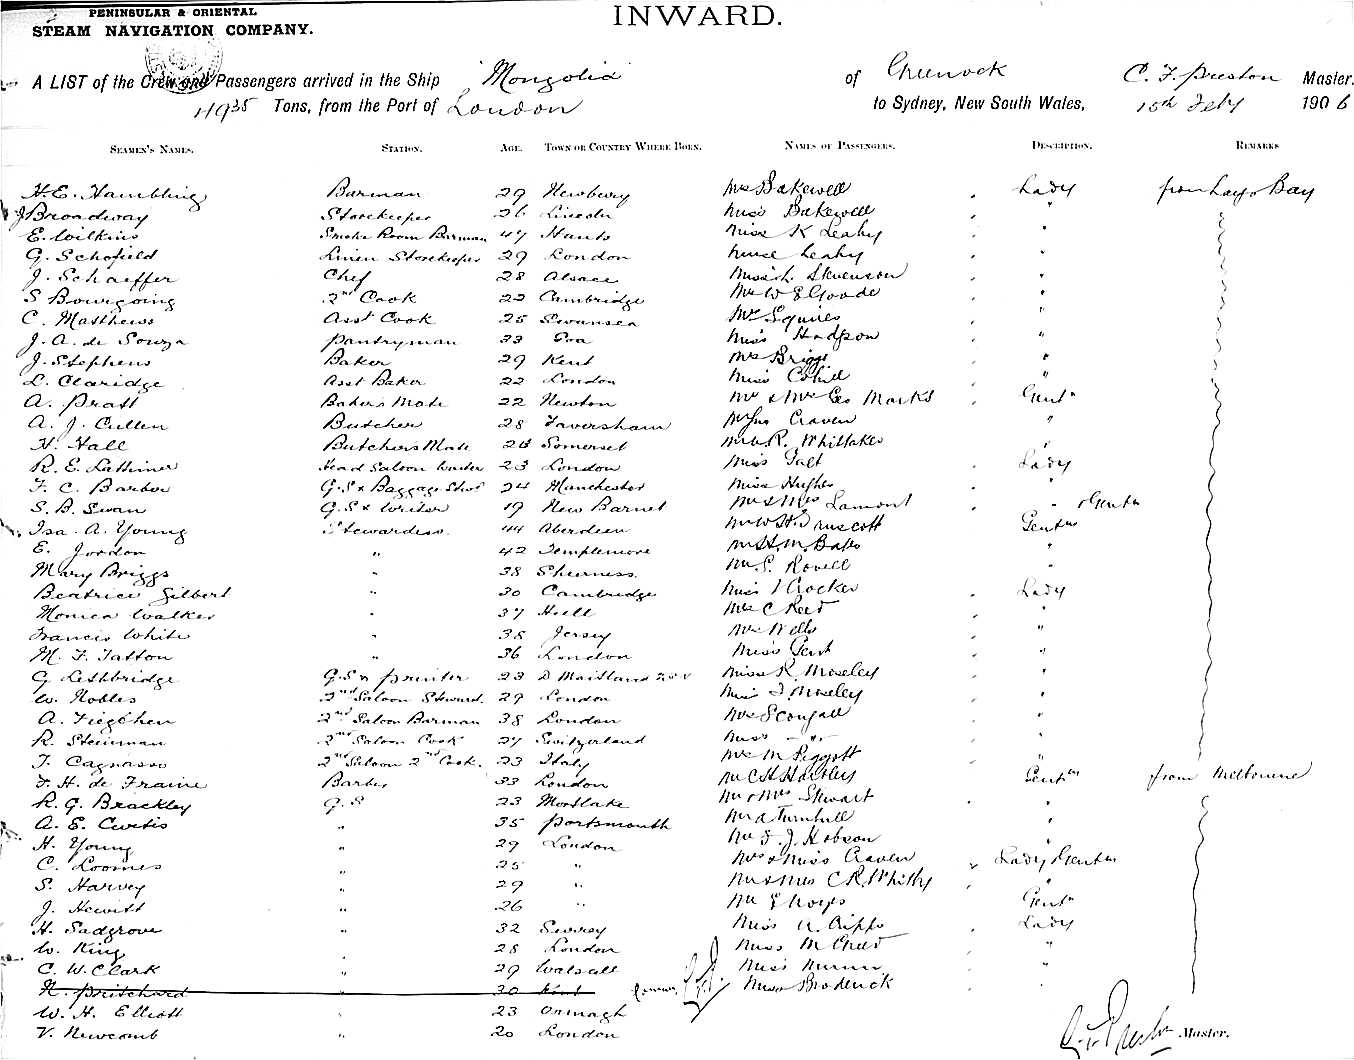 PENINSULAR & ORIENTAL
STEAM NAVIGATION COMPANY.
INWARD.
A LIST of the Crew and Passengers arrived in the Ship Mongolia of Greenock C. F. Preston Master.
4935 Tons, from the Port of London to Sydney, New South Wales, 15th Feby 1906
SEAMEN'S NAMES. STATION. AGE. TOWN OR COUNTRY WHERE BORN. NAMES OF PASSENGERS. DESCRIPTION. REMARKS
H. E. Hambling Barman 29 Newbury Mrs Bakewell Lady from Bay
J Broadway Storekeeper 26 Lincoln Miss Bakewell "
E. Wilkins Smoke Room Barman 47 Hunts Miss K Leahy "
G. Schofield Linen Storekeeper 29 London Leahy "
J. Schaeffer Chef 28 Alsace Miss L. Stevenson "
S Bourgoing 2nd Cook 22 Cambridge Mrs W E Goode "
C. Matthews Asst Cook 25 Swansea Squires "
J. A. de Souza Pantryman 33 Goa Miss Hodgson "
J. Stephens Baker 29 Kent Mrs Briggs "
L. Claridge Asst Baker 22 London Miss Cahill "
A. Pratt Bakers Mate 22 Newton Mr & Mrs Geo Marks Gentn
A. J. Cullen Butcher 28 Faversham Mr Jno Craven "
H. Hall Butchers Mate 24 Somerset R. Whittaker "
R. E. Lattimer Head Saloon Waiter 23 London Miss Galt Lady
F. C. Barber G.S & Baggage Stwd 24 Manchester Miss Hughes "
S. B. Swan G.S & Writer 19 New Barnet Mr & Mrs Lamont " & Gentn
Isa. A. Young Stewardess. 44 Aberdeen Mr W. H. Truscott Gentn
E. Jordon " 42 Templemore Mr H. M. Bates "
Mary Briggs " 38 Sheerness. Mr S. Rovell "
Beatrice Gilbert " 30 Cambridge Miss Crocker Lady
Monica Walker " 37 Hull Mrs C Reed "
Francis White " 38 Jersey Mrs Wells "
M. F. Tatton " 36 London Miss Gent "
G Lethbridge G.S & Printer 23 Miss K. Moseley "
W. Nobles 2nd Saloon Steward. 29 London Miss Moseley "
A. 2nd Saloon Barman 38 London Mrs Scougall "
R. Steinman 2nd Saloon Cook 27 Switzerland Miss - " - "
T. Cagnasso 2nd Saloon 2nd Cook. 23 Italy M Piggott "
F. H. de Fraine Barber 33 London Mr C H Hartley Gentn from Melbourne
R. G. Brackley G.S 23 Mortlake Mr & Mrs Stewart "
A. E. Curtis " 35 Portsmouth Mr A Turnbull "
H. Young " 29 London Mr F. J. Hobson "
C. Loomes " 25 " Mrs & Miss Craven Lady Gentn
S. Harvey " 29 " Mr & Mrs C R Whitby "
J. Hewitt " 26 " Mr E Gentn
H. Sadgrove " 32 Surrey Miss Cripps Lady
W. King " 28 London Miss M "
C. W. Clark " 29 Walsall Miss "
N. Pritchard " 30 Kent Miss Broderick "
W. H. Elliott " 23 Omagh
V. Newcomb " 20 London C. F. Preston Master.